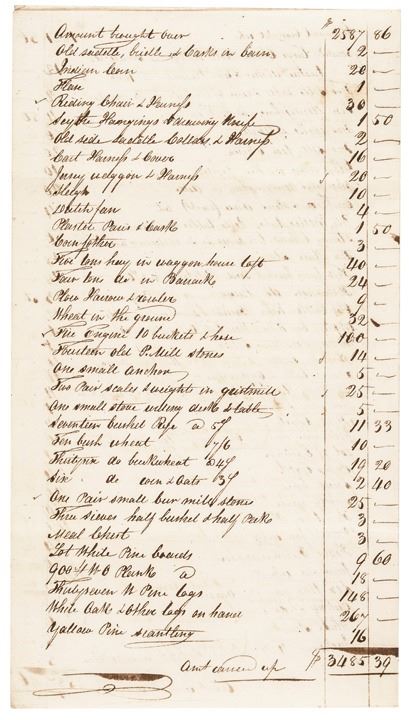 Amount brought over 2587 86
Old saddle, bridle & Casks in Barn 2 —
Indian Corn 20 —
Flax 1 —
Riding Chair & Harness 30 —
Scythe Hangings & drawing Knife 1 50
Old side Saddle Collars & Harness 2 —
Cart Harness & Cover 16 —
Jersey waggon & Harness 20 —
Sleigh 10 —
Dutch fan 4 —
Plaster Paris & Cask 1 50
Corn fodder 3 —
Five tons hay in waggon house loft 40 —
Four tons do in Barrack 24 —
Plow Harrow & roller 9 —
Wheat in the ground 32 —
Fire Engine 10 buckets & hose 100 —
Fourteen old P. Mill stones 14 —
One small anchor 5 —
Two Pair scales & weights in gristmill 25 —
One small stove writing desk & table 5 —
Seventeen bushel Rye @ 5/ 11 33
Ten bush wheat 7/6 10 —
Thirtysix do buckwheat @ 4/ 19 20
Six do corn & Oats 3/ 2 40
One Pair small bur mill stones 25 —
Three sieves half bushel & half Peck 3 —
Meal Chest 3 —
Lot White Pine boards 9 60
900 ft W O Plank @ 18 —
Thirtyseven W Pine logs 148 —
White Oak & Other logs on hand 267 —
Yallow Pine Scantling 16
Amt carried up 3485 39